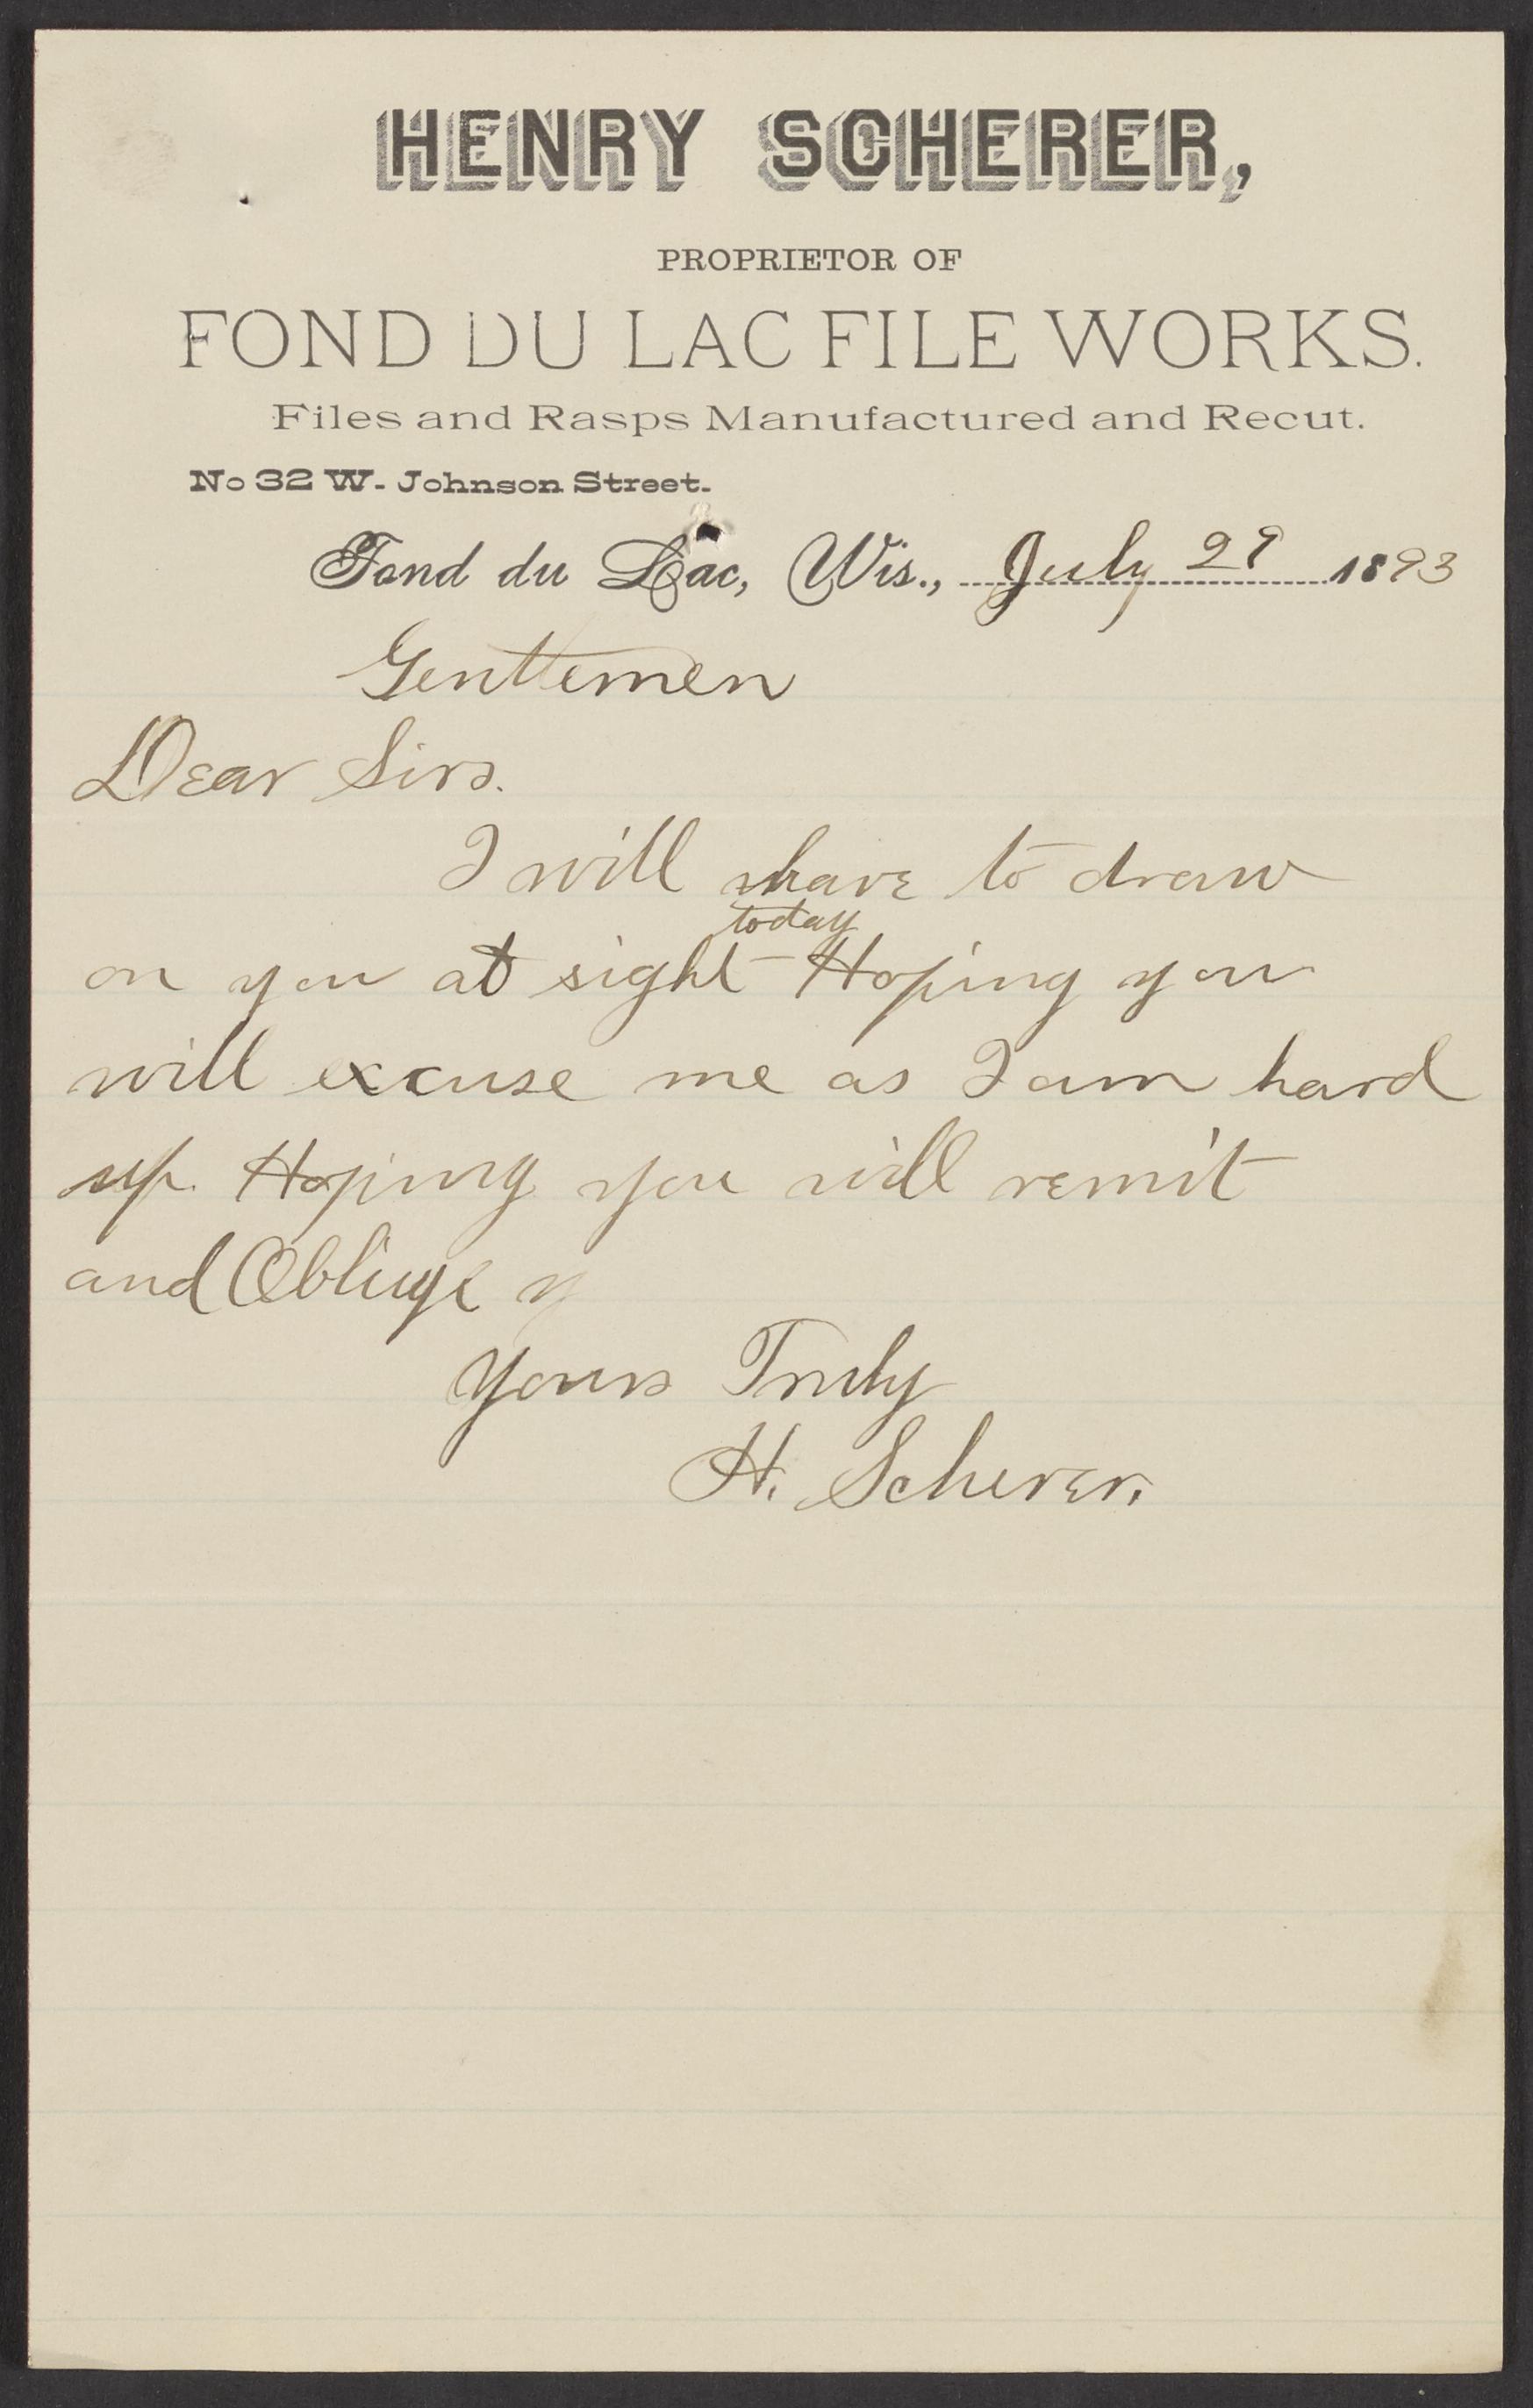 HENRY SCHERER,
PROPRIETOR OF
FOND DU LAC FILE WORKS.
Files and Rasps Manufactured and Recut.
No 32 W. Johnson Street.
Fond du Lac, Wis., July 29 1893
Gentlemen
Dear Sirs.
I will have to draw
today
on you at sight Hoping you
will excuse me as I am hard
up. Hoping you will remit
and Obliuge y
Yours Truly
H. Scherer.